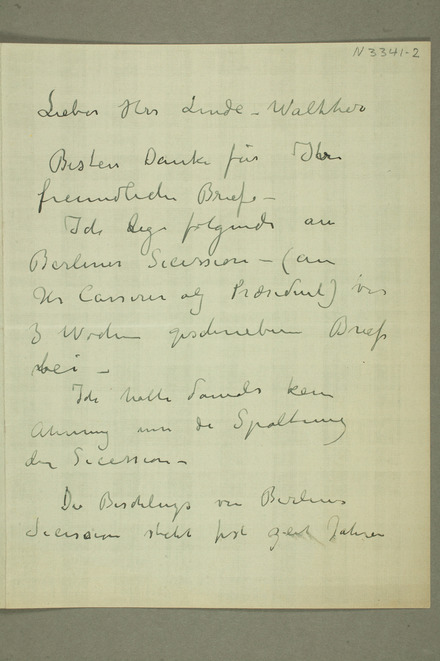 N 3341-2
Lieber Herr Linde-Walther
Besten Danke für Ihr
freundliche Brief –
Ich lege folgende an
Berliner Secession – (an
Hr Cassirer als Præsident) vor
3 Wochen geschrieben Brief
bei –
Ich hatte damals kein
Ahnung um die Spaltung
der Secession –
Die von Berliner
Secession steht fest Jahren